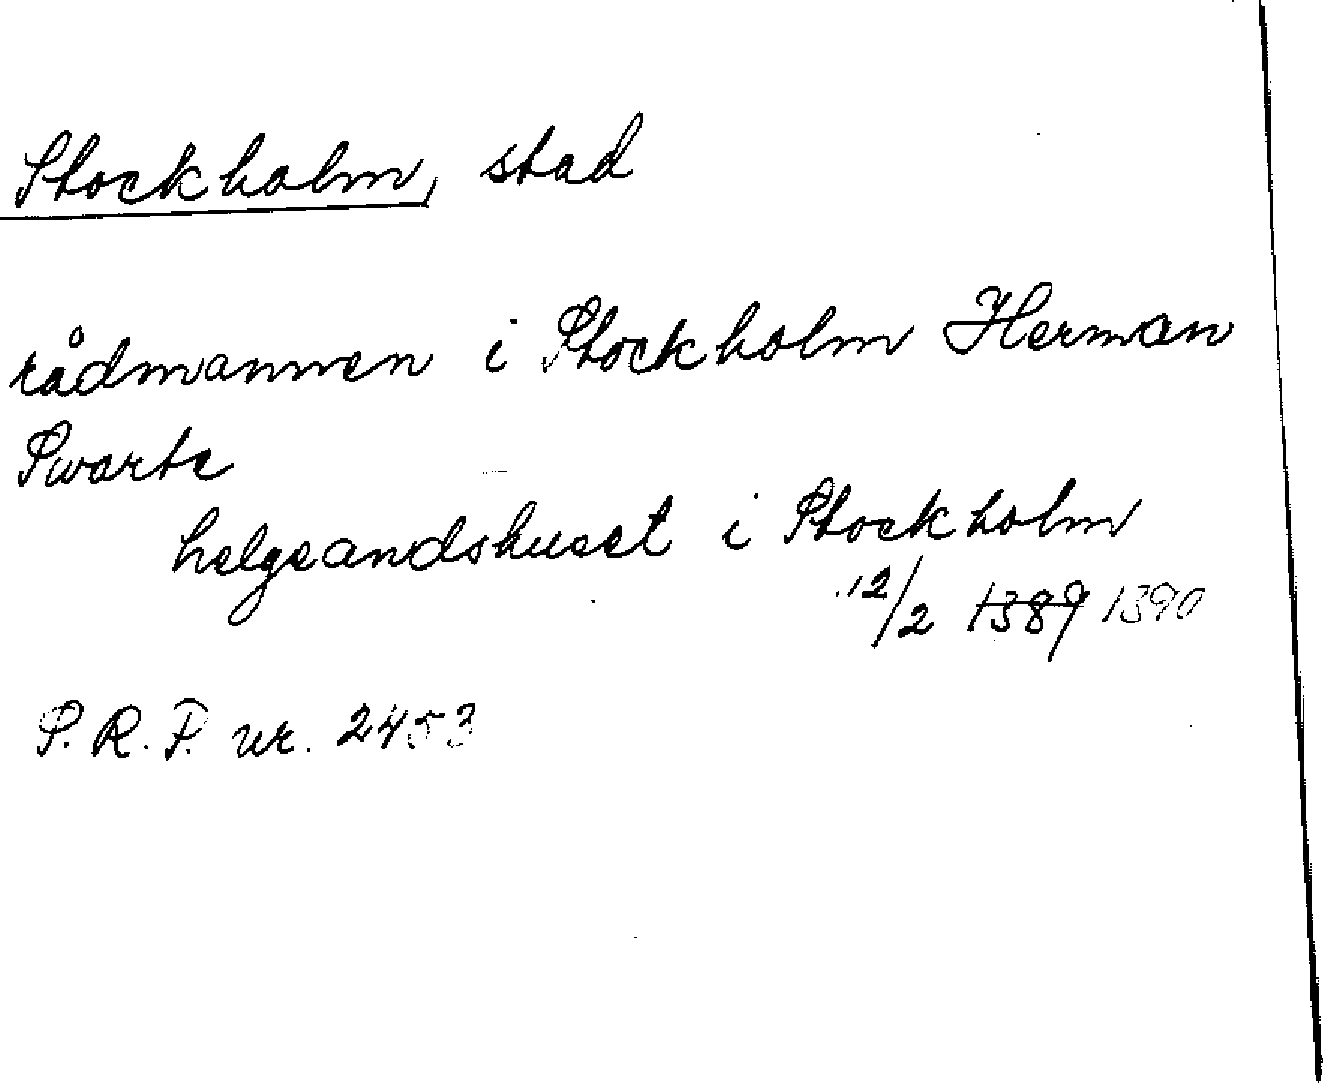 Stockholm, stad
rådmannen i Stockholm Herman
Swarte
helgeandshuset i Stockholm
12/2 1389 1390
S.R.P. nr. 2453